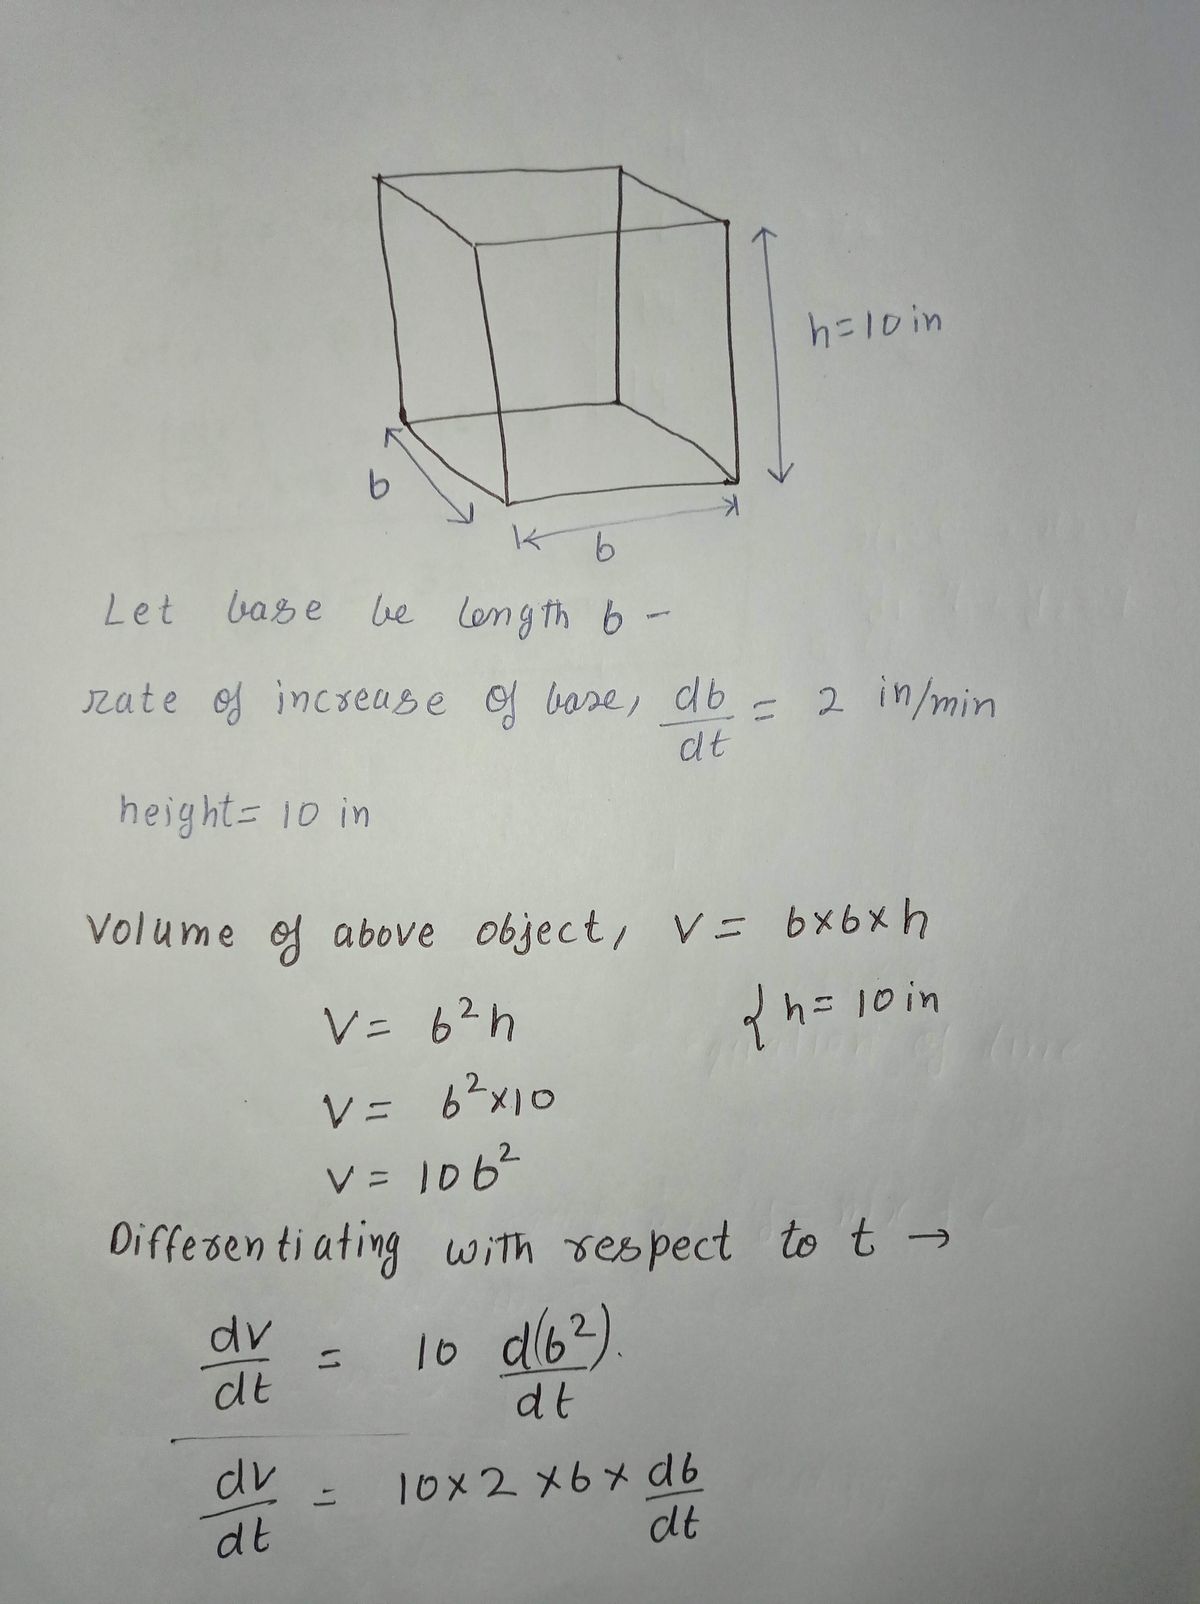 h=10 in
b
b
Let base be length b -
rate of increase of base, db/dt = 2 in/min
height= 10 in
Volume of above object, V= b×b×h
V= b²h { h= 10 in
V= b²×10
V= 10b²
Differentiating with respect to t →
dv/dt = 10 d(b²)/dt.
dv/dt = 10×2×b× db/dt